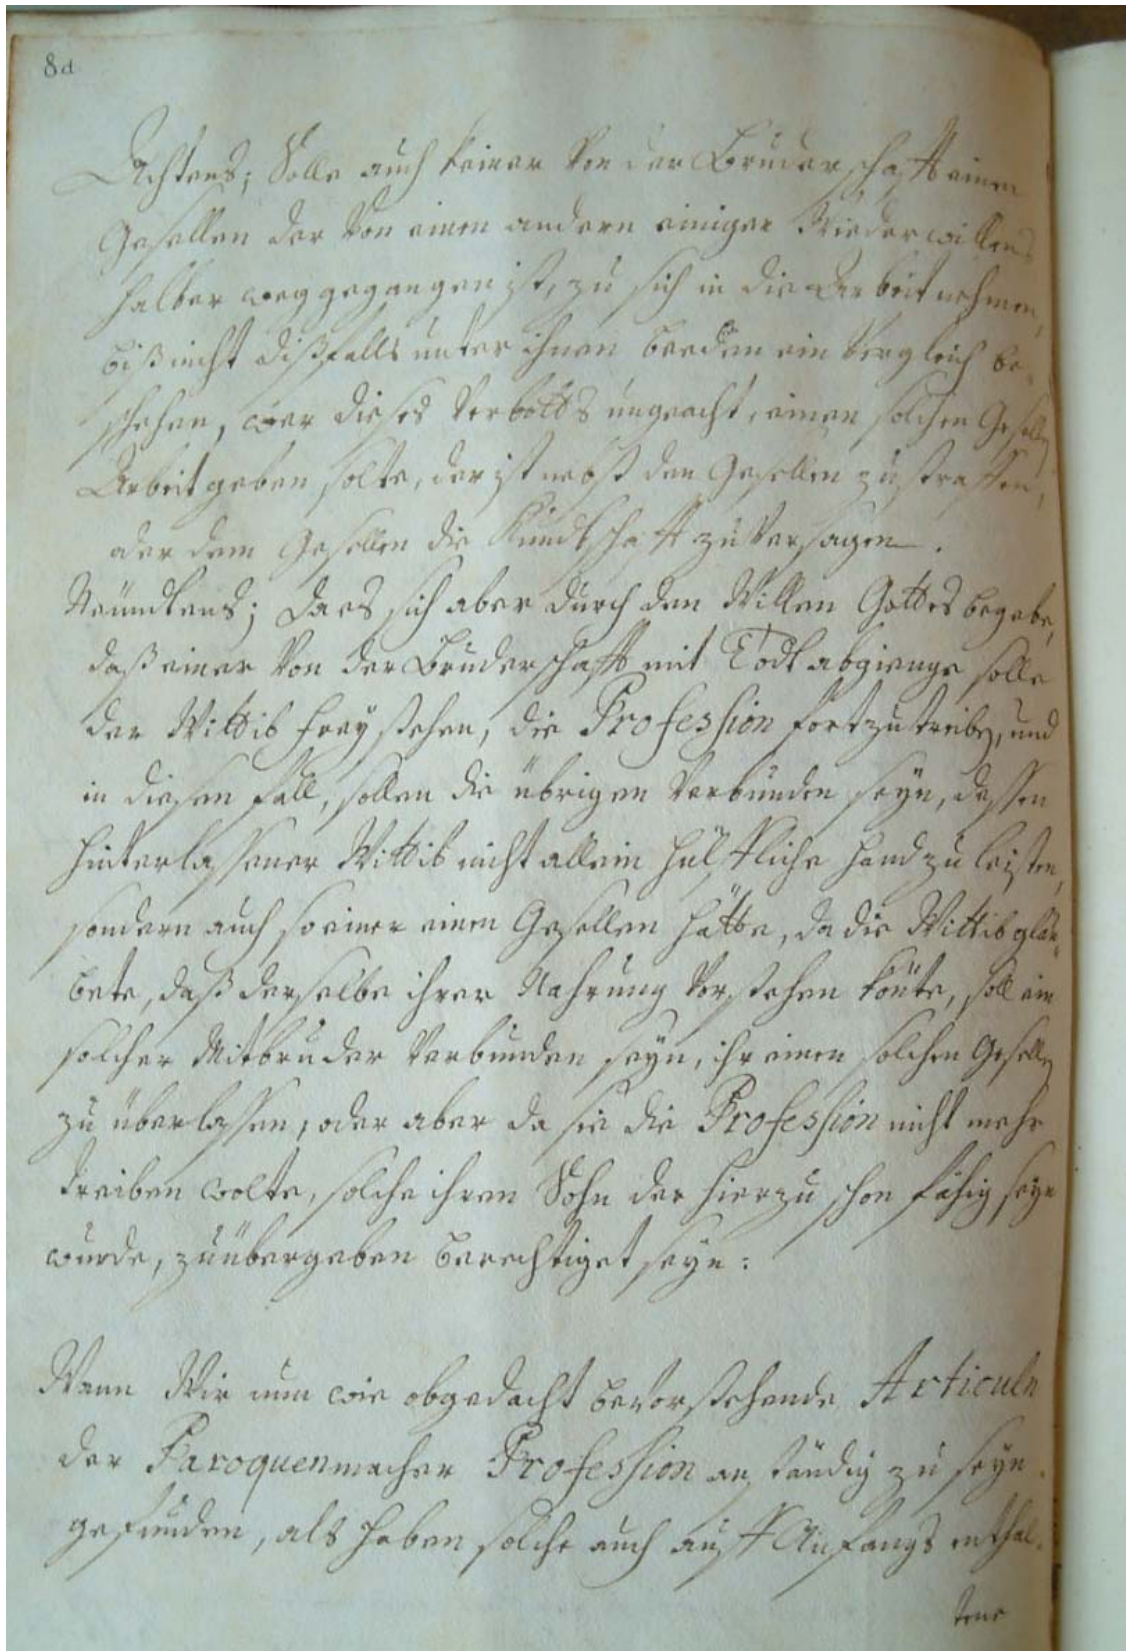 8d
Achtens; Solle auch keiner Von der Bruderschafft einen
Gesellen der Von einen andern einiger Wiederwillens
halber weggegangen ist, zu sich in die Arbeit nehmen,
biß nicht dißfalls unter ihnen beeden ein Vergleich be-
schehen, wer dieses Verbotts ungeacht, einen solchen Gesellen
Arbeit geben solte, der ist nebst den Gesellen zu straffen,
oder dem Gesellen die Kundschafft zu Versagen.
Neundtens; da es sich aber durch den Willen Gottes begebe,
daß einer Von der Bruderschafft mit Todt abgienge solle
der Wittib frey stehen, die Profession fortzutreiben, und
in diesen fall, sollen die übrigen Verbunden seyn, dessen
hinterlassener Wittib nicht allein hülffliche hand zu leisten,
sondern auch so einer einen Gesellen hätte, da die Wittib glau-
bete, daß derselbe ihrer Nahrung Vorstehen könte, soll ein
solcher Mitbruder Verbunden seyn, ihr einen solchen Gesellen
zu überlassen, oder aber da sie die Profession nicht mehr
treiben wolte, solche ihren Sohn der hierzu schon fähig seyn
wurde, zu übergeben berechtiget seyn:
Wann Wir nun wie obgedacht bevorstehende Articuln
der Paroquenmacher Profession anständig zu seyn
gefunden, als haben solche auch auff Anfangs enthal-
tene